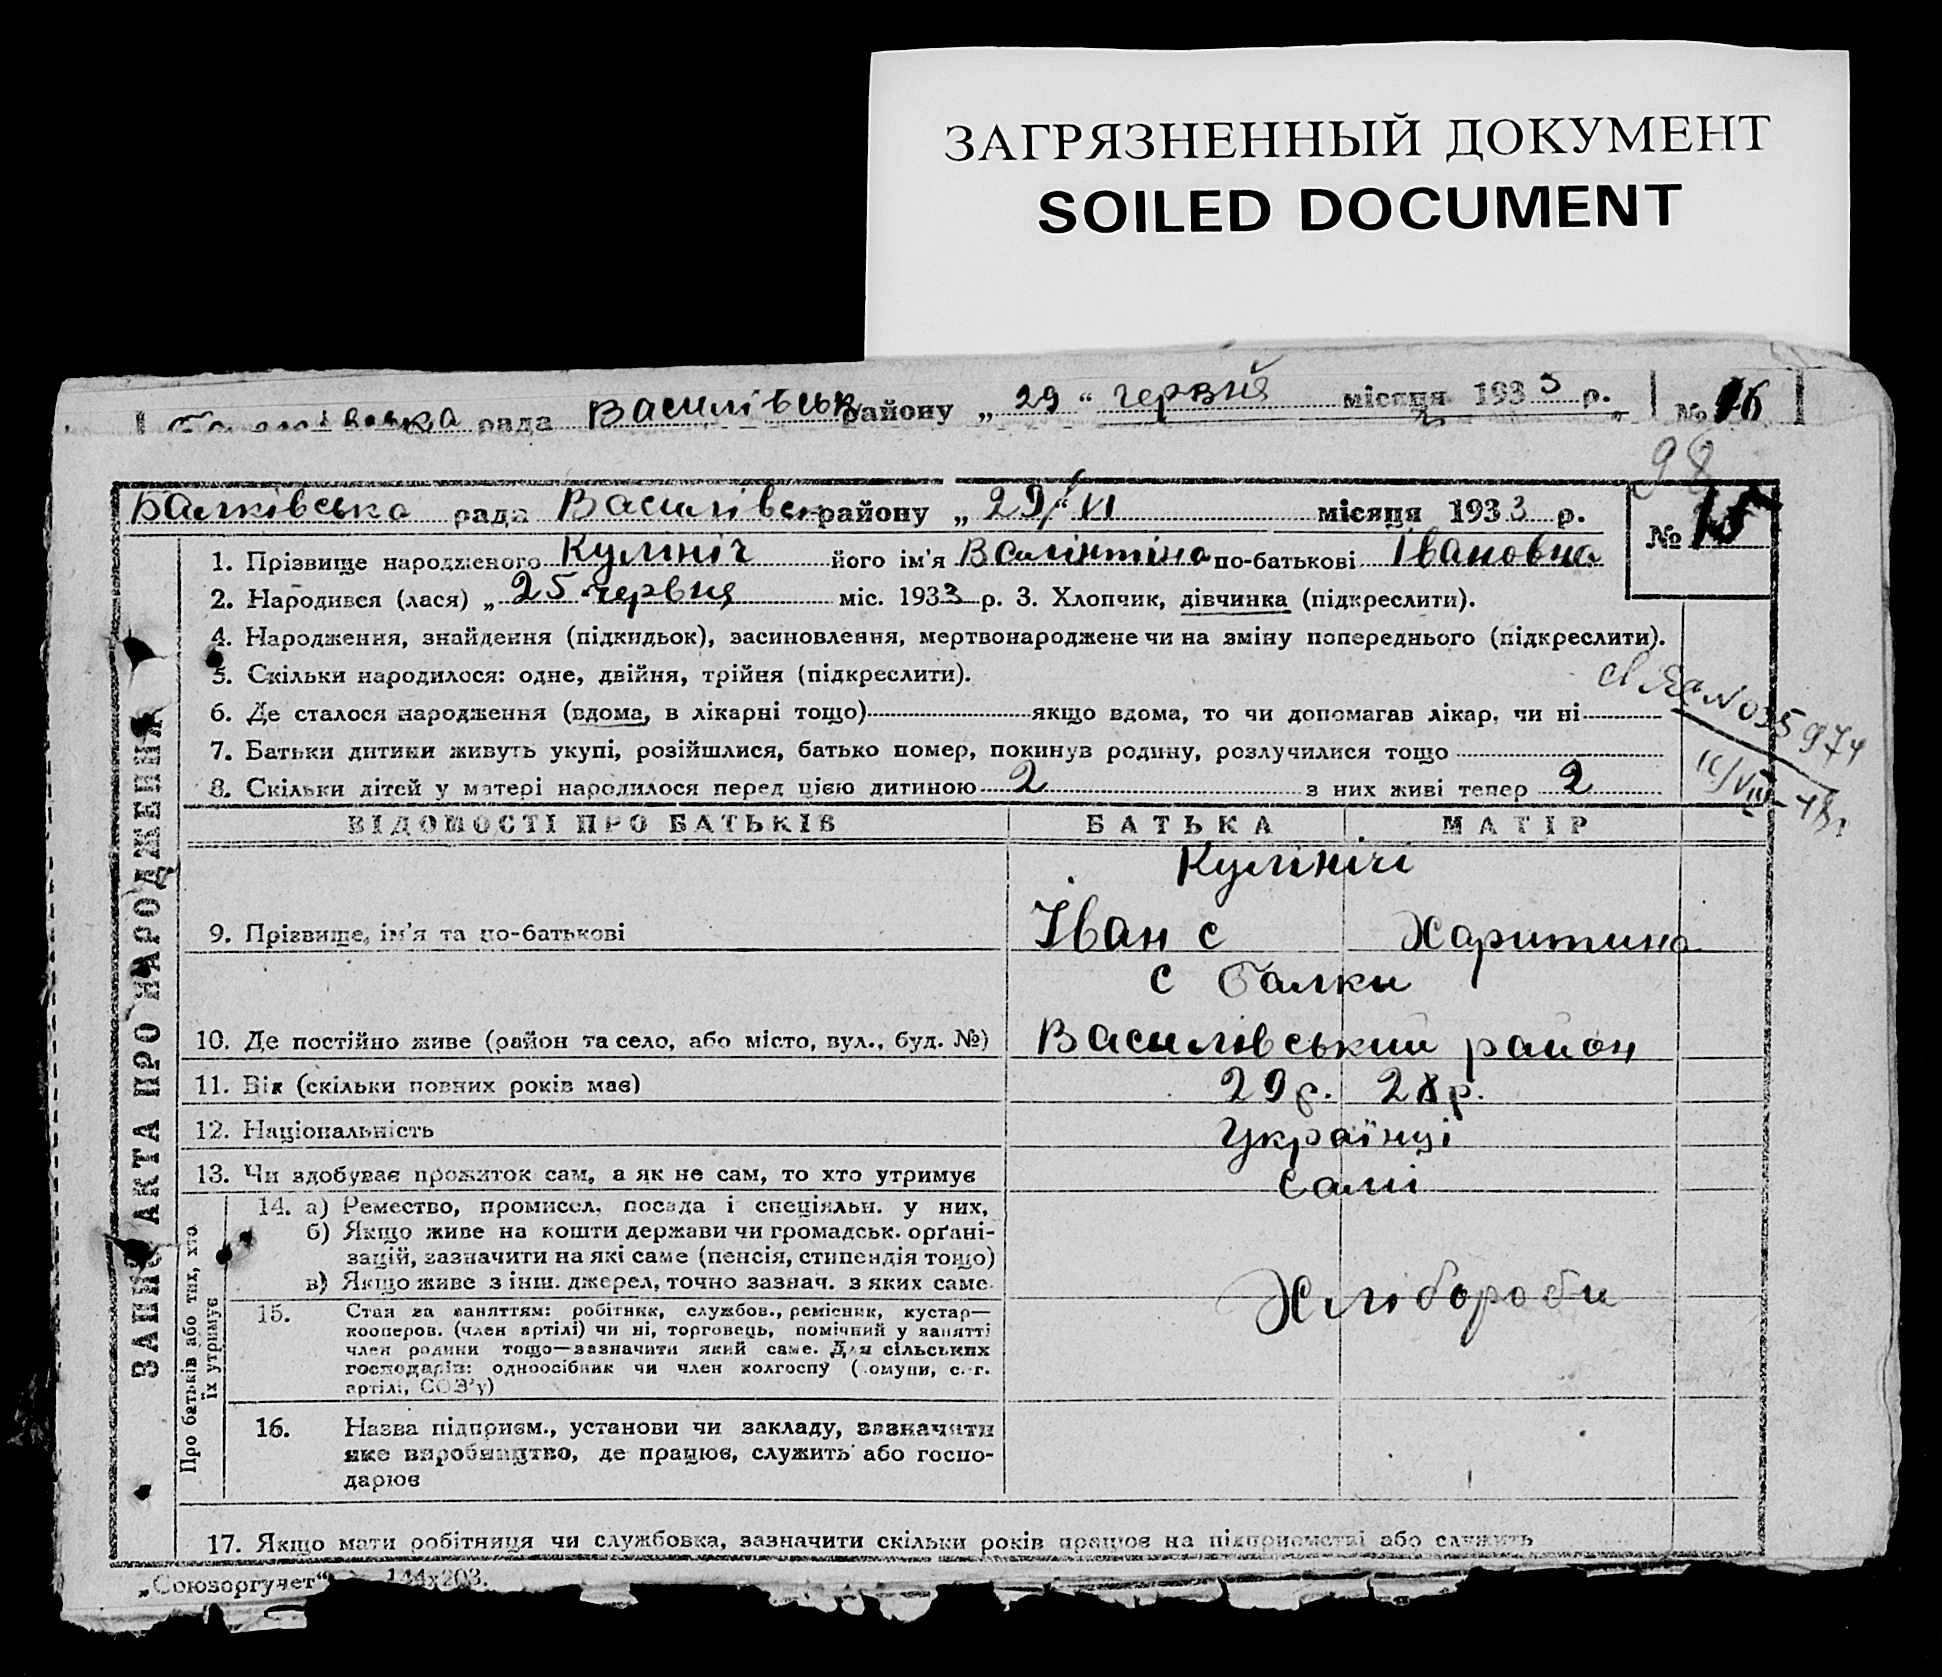 ЗАГРЯЗНЕННЫЙ ДОКУМЕНТ
SOILED DOCUMENT
рада Василівськ району „ 29 “ червня місяця 1933 р. № 16
98
Балківсько рада Василівськ району „ 29/VI місяця 1933 р. № 15
1. Прізвище народженого Кулініч його ім'я Валінтіна по-батькові Івановна
2. Народився (лася) „ 25 червня міс. 1933 р. 3. Хлопчик, дівчинка (підкреслити).
4. Народження, знайдення (підкидьок), засиновлення, мертвонароджене чи на зміну попереднього (підкреслити).
5. Скільки народилося: одне, двійня, трійня (підкреслити).
6. Де сталося народження (вдома, в лікарні тощо) якщо вдома, то чи допомагав лікар, чи ні
7. Батьки дитини живуть укупі, розійшлися, батько помер, покинув родину, розлучилися тощо
8. Скільки дітей у матері народилося перед цією дитиною 2 з них живі тепер 2
№ 035974
ВІДОМОСТІ ПРО БАТЬКІВ БАТЬКА МАТІР
Кулінічі
9. Прізвище, ім'я та по-батькові Іван с Харитина
с Балки
10. Де постійно живе (район та село, або місто, вул., буд. №) Василівський район
11. Вік (скільки повних років має) 29 р. 28 р.
12. Національність Українці
13. Чи здобуває прожиток сам, а як не сам, то хто утримує Самі
14. а) Ремество, промисел, посада і спеціяльн. у них,
б) Якщо живе на кошти держави чи громадськ. орґані-
зацій, зазначити на які саме (пенсія, стипендія тощо)
в) Якщо живе з інш. джерел, точно зазнач. з яких саме
Хлібороби
15. Стан за заняттям: робітник, службов., ремісник, кустар—
кооперов. (член артілі) чи ні, торговець, помічний у занятті
член родини тощо—зазначити який саме. Для сільських
господарів: одноосібник чи член колгоспу (комуни, с.-г.
артілі, СОЗ'у)
16. Назва підприєм., установи чи закладу, зазначити
яке виробництво, де працює, служить або госпо-
дарює
17. Якщо мати робітниця чи службовка, зазначити скільки років працює на підприємстві або служить
ЗАПИС АКТА ПРО НАРОДЖЕННЯ
Про батьків або тих, хто
їх утримує
„Союзоргучет“ 144х203.